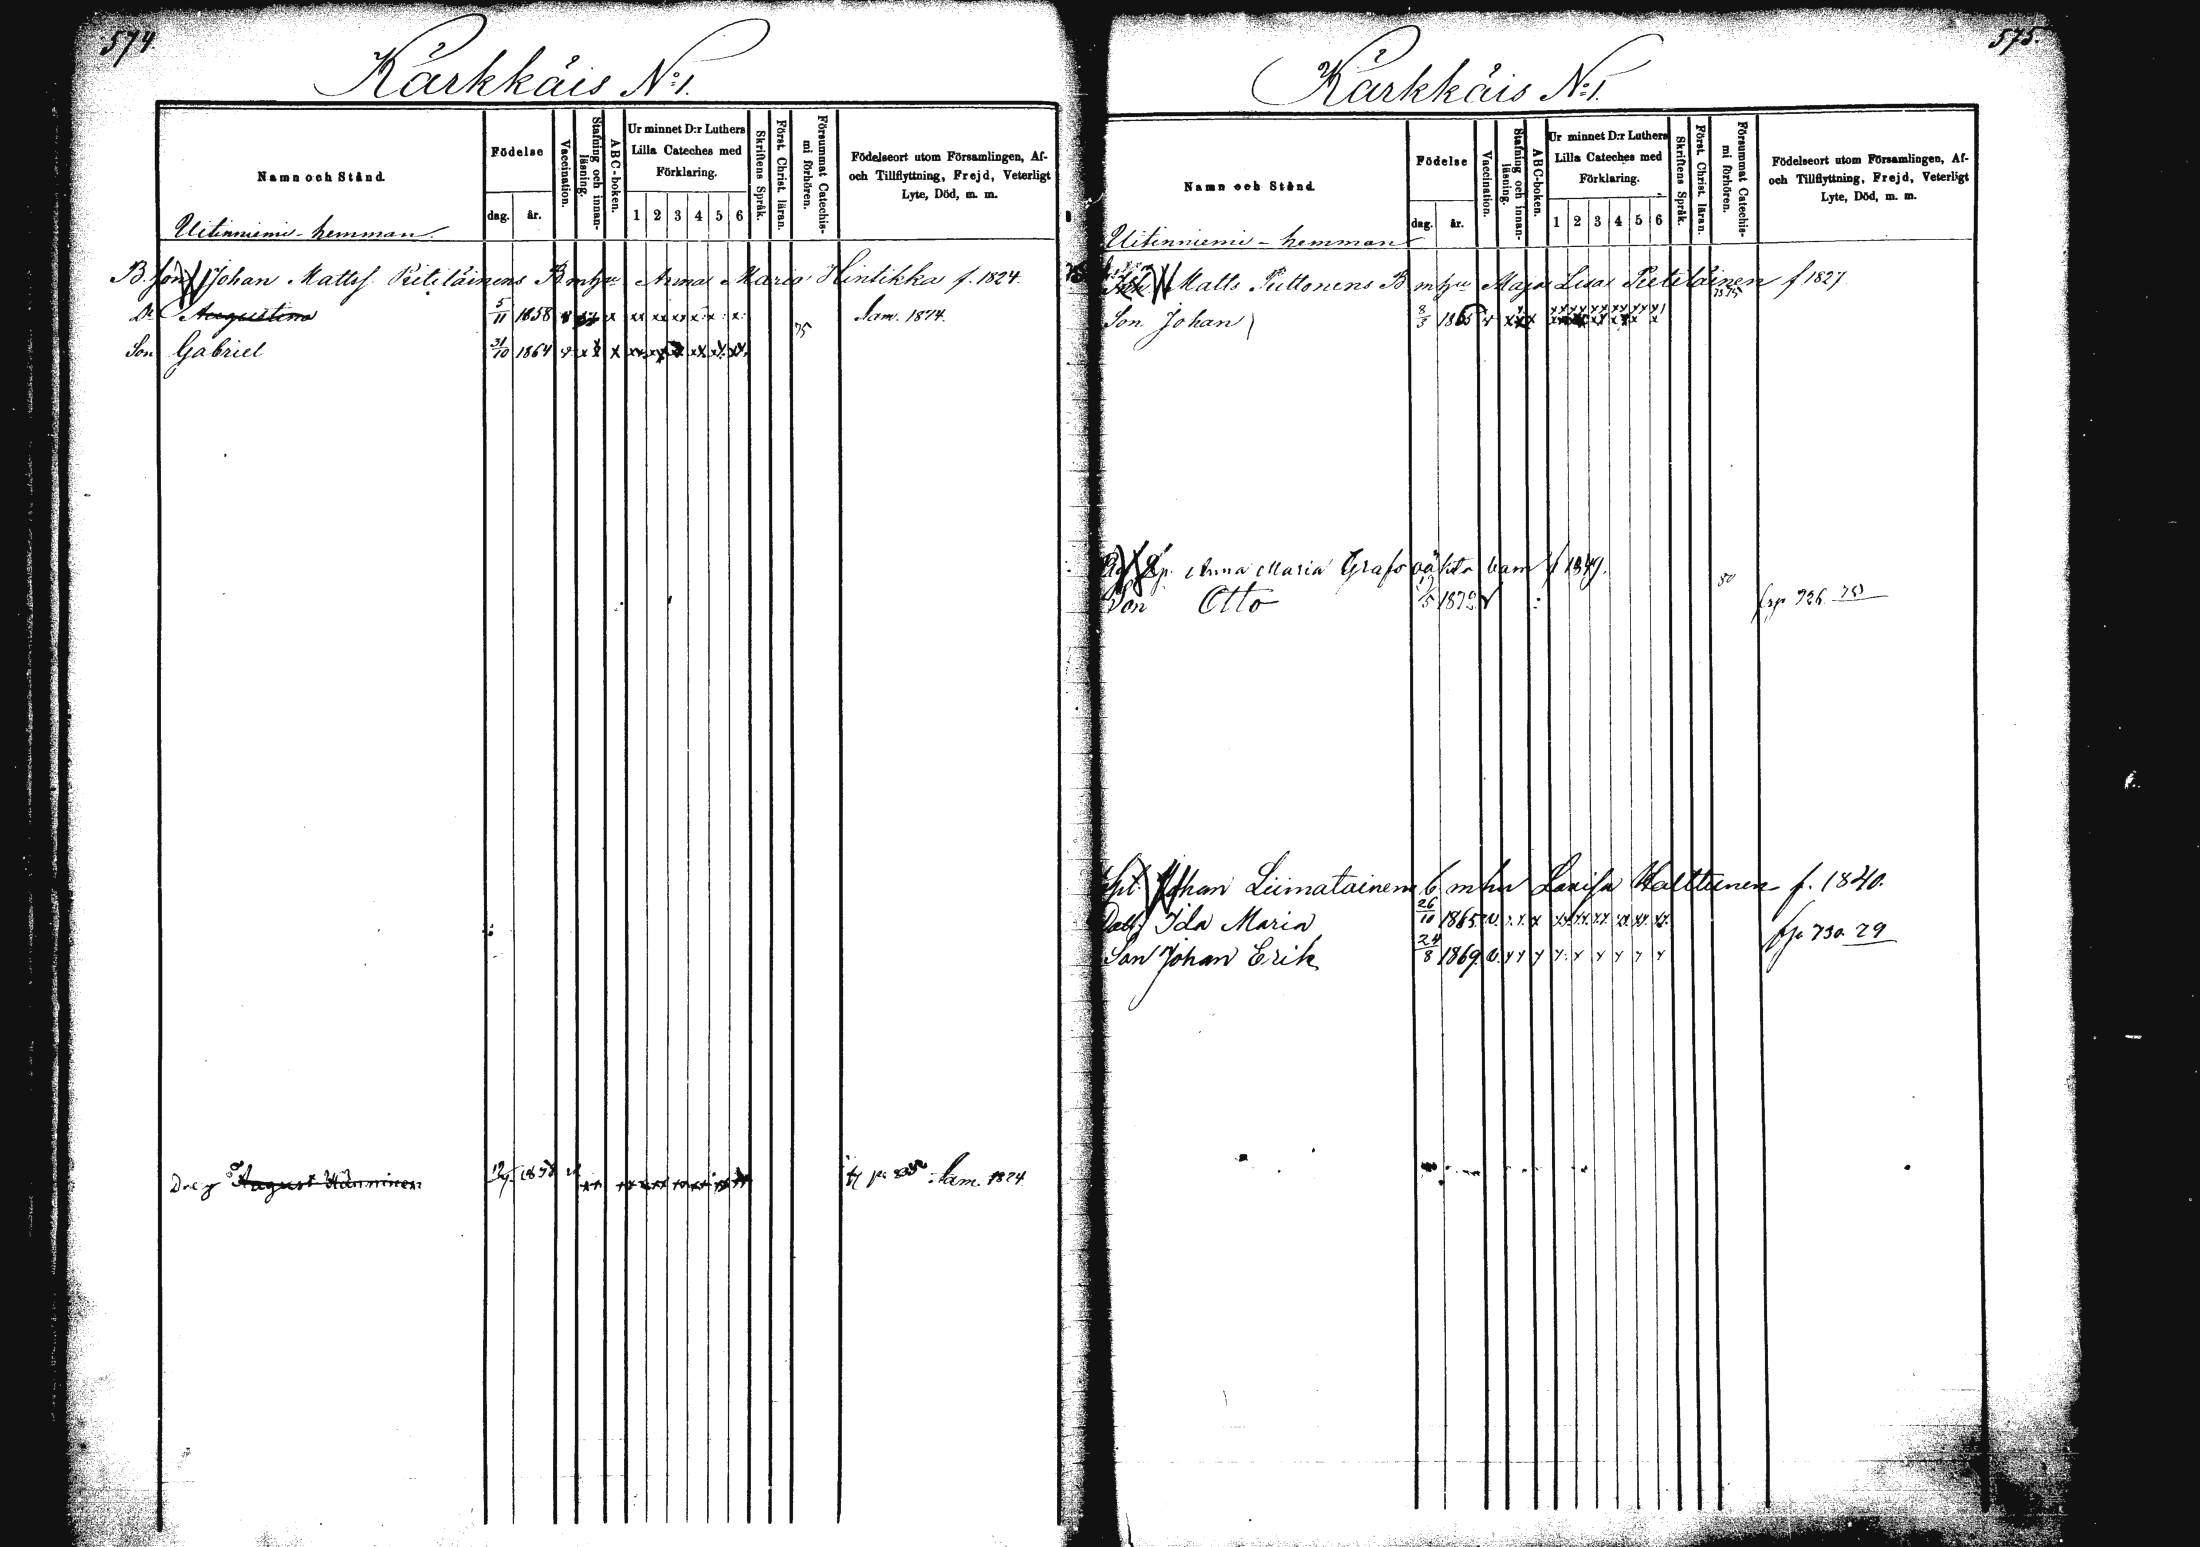 574.
Kärkkäis No 1.
Namn och Stånd
Födelse
dag. år.
Vaccination.
Stafning och innan-läsning.
ABC-boken.
Ur minnet D:r Luthers
Lilla Cateches med
Förklaring.
1 2 3 4 5 6
Skriftens Språk.
Först. Christ. läran.
Försummat Catechis-
mi förhören.
Födelseort utom Församlingen, Af-
och Tillflyttning, Frejd, Veterligt
Lyte, Död, m. m.
Uitinniemi-hemman
Johan Mattss. Pietiläinens B mhu Anna Maria Hintikka f. 1824.
Dr Augustina 5/11 1858 v x x xx xx xx x x x 75 Nam. 1874.
Son Gabriel 31/10 1864 v x x x xx xx xx xx xx
August Hänninen Nam. 1874
575.
Kärkkäis No 1.
Namn och Stånd
Födelse
dag. år.
Vaccination.
Stafning och innan-
läsning.
ABC-boken.
Ur minnet D:r Luthers
Lilla Cateches med
Förklaring.
1 2 3 4 5 6
Skriftens Språk.
Först. Christ. läran.
Försummat Catechis-
mi förhören.
Födelseort utom Församlingen, Af-
och Tillflyttning, Frejd, Veterligt
Lyte, Död, m. m.
Uitinniemi-hemman
Matts Puttonens B mhu Maja Lisa Pietiläinen f 1827
Son Johan 8/3 1865 v 73 75
Anna Maria Grafs oäkta barn f 1849.
Son Otto 1872 v 80
Johan Liimatainens b mhu Lovisa Halttunen f. 1840.
Dott. Ida Maria 26/10 1865 v.
Son Johan Erik 24/8 1869 v. x x x x x x x x x